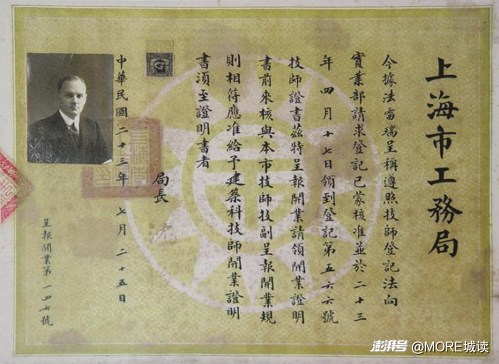 上海市工務局
今據法當瑞呈稱遵照技師登記法向
實業部請求登記已蒙核准並於二十三
年四月十七日領到登記第五六六號
技師證書茲特呈報開業請領開業證明
書前來核與本市技師技副呈報開業規
則相符應准給予建築科技師開業證明
書須至證明書者
局長
中華民國二十三年七月二十五日
呈報開業第一四六號
澎湃号 @MORE城读